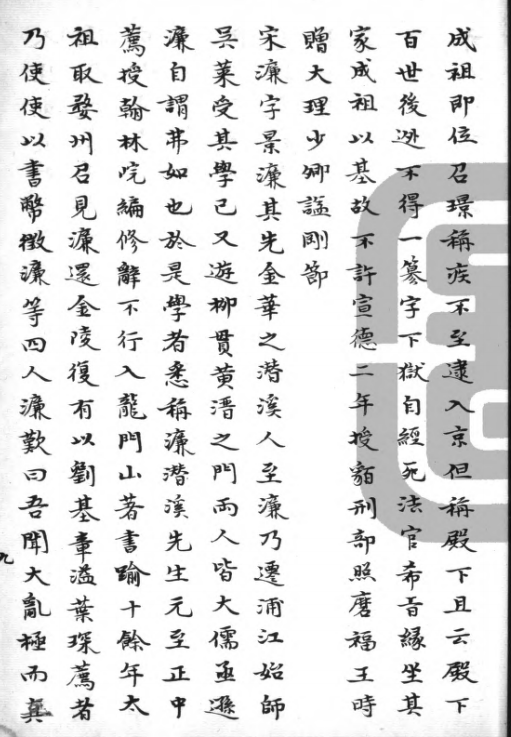 成祖即位召璟稱疾不至逮入京但稱殿下且云殿下
百世後迯不得一篡字下獄自經死法官希旨緣坐其
家成祖以基故不許宣德二年授貂刑部照磨福王時
贈大理少卿諡剛節
宋濂字景濂其先金華之潛溪人至濂乃遷浦江始師
吳萊受其學已又遊柳貫黃溍之門兩人皆大儒亟遜
濂自謂弗如也於是學者悉稱濂潛溪先生元至正中
薦授翰林院編修辭不行入龍門山著書踰十餘年太
祖取婺州召見濂還金陵復有以劉基章溢葉琛薦者
乃使使以書幣徵濂等四人濂歎曰吾聞大亂極而真
九